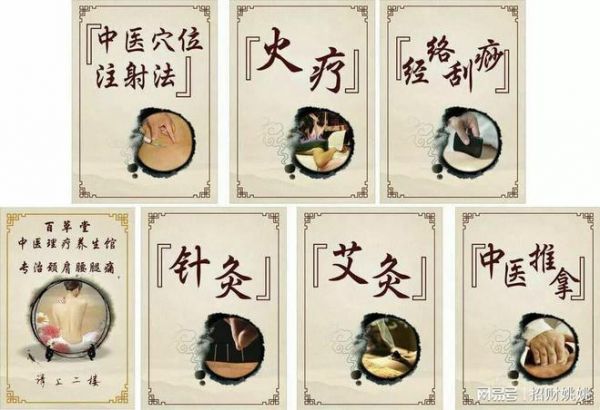 中医穴位
注射法
火疗
经络刮痧
百草堂
中医理疗养生馆
专治颈肩腰腿痛
请上二楼
针灸
艾灸
中医推拿
网易号 | 招财姚姚